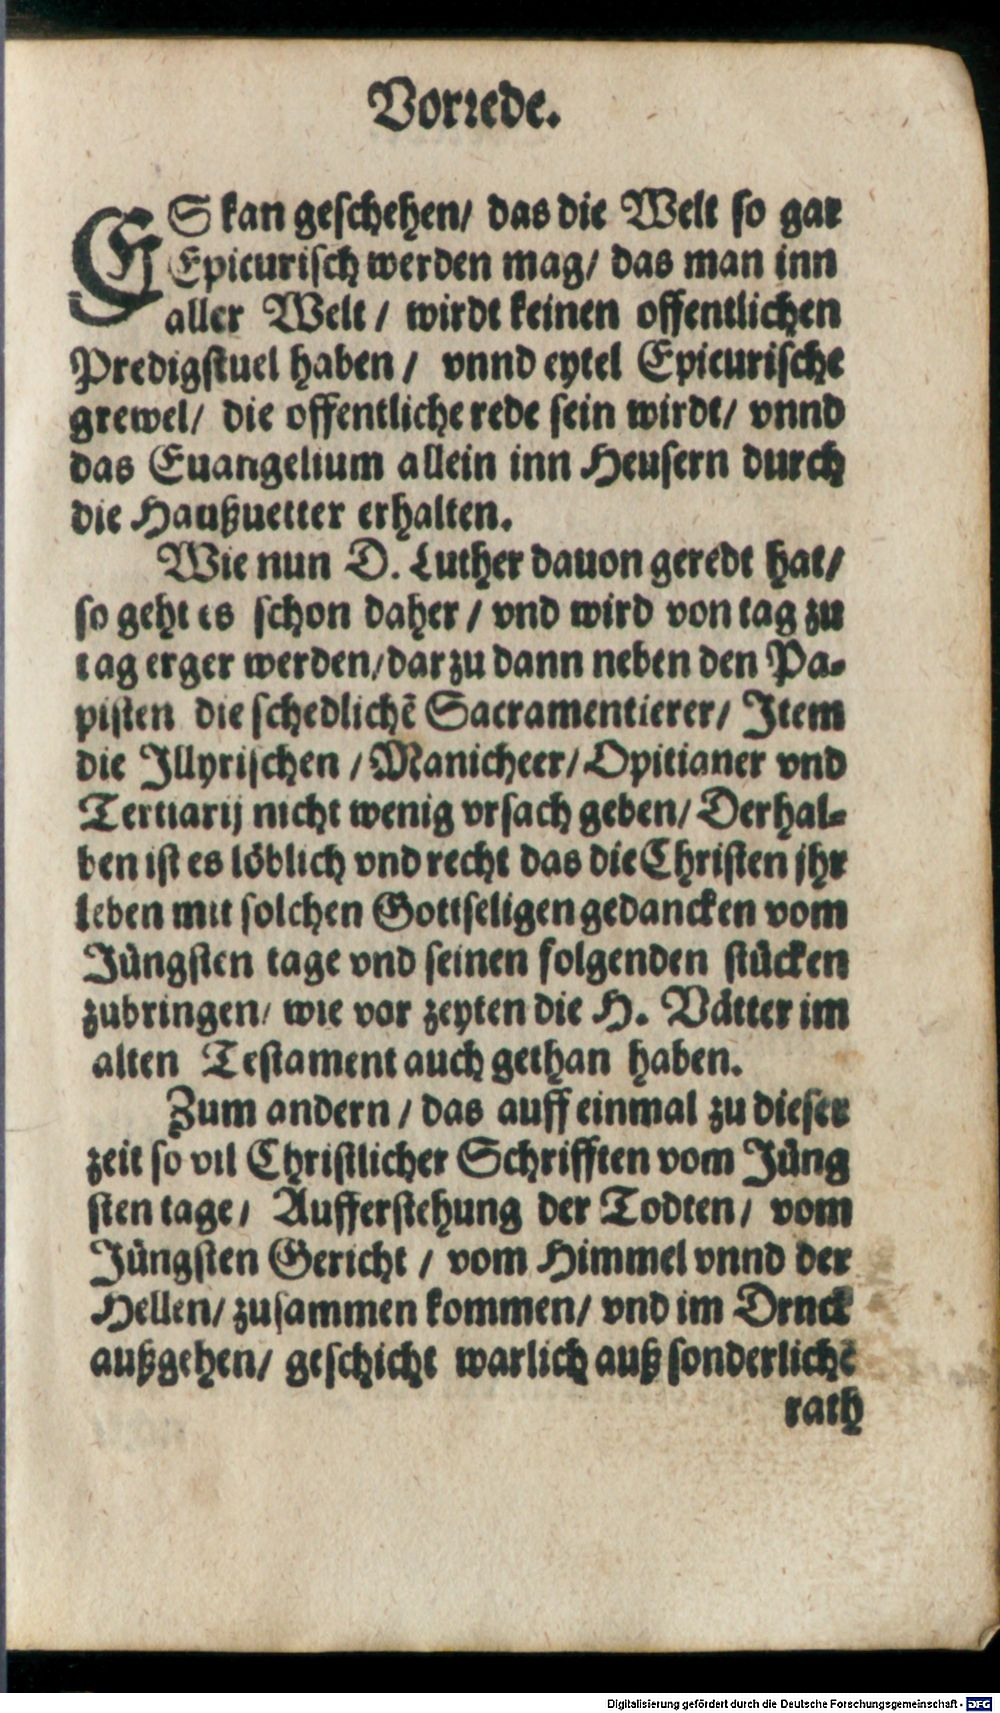 Vorrede.
ES kan geschehen/ das die Welt so gar
Epicurisch werden mag/ das man inn
aller Welt / wirdt keinen offentlichen
Predigstuel haben / vnnd eytel Epicurische
grewel/ die offentliche rede sein wirdt/ vnnd
das Euangelium allein inn Heusern durch
die Haußuetter erhalten.
Wie nun D. Luther dauon geredt hat/
so geht es schon daher / vnd wird von tag zu
tag erger werden/dar zu dann neben den Pa-
pisten die schedlichẽ Sacramentierer/ Item
die Illyrischen /Manicheer/Opitianer vnd
Tertiarij nicht wenig vrsach geben/ Derhal-
ben ist es löblich vnd recht das die Christen jhr
leben mit solchen Gottseligen gedancken vom
Jüngsten tage vnd seinen folgenden stücken
zubringen/ wie vor zeyten die H. Vätter im
alten Testament auch gethan haben.
Zum andern / das auff einmal zu dieser
zeit so vil Christlicher Schrifften vom Jüng
sten tage/ Aufferstehung der Todten/ vom
Jüngsten Gericht / vom Himmel vnnd der
Hellen/ zusammen kommen/ vnd im Drnck
außgehen/ geschicht warlich auß sonderlichẽ
rath
Digitalisierung gefördert durch die Deutsche Forschungsgemeinschaft - DFG